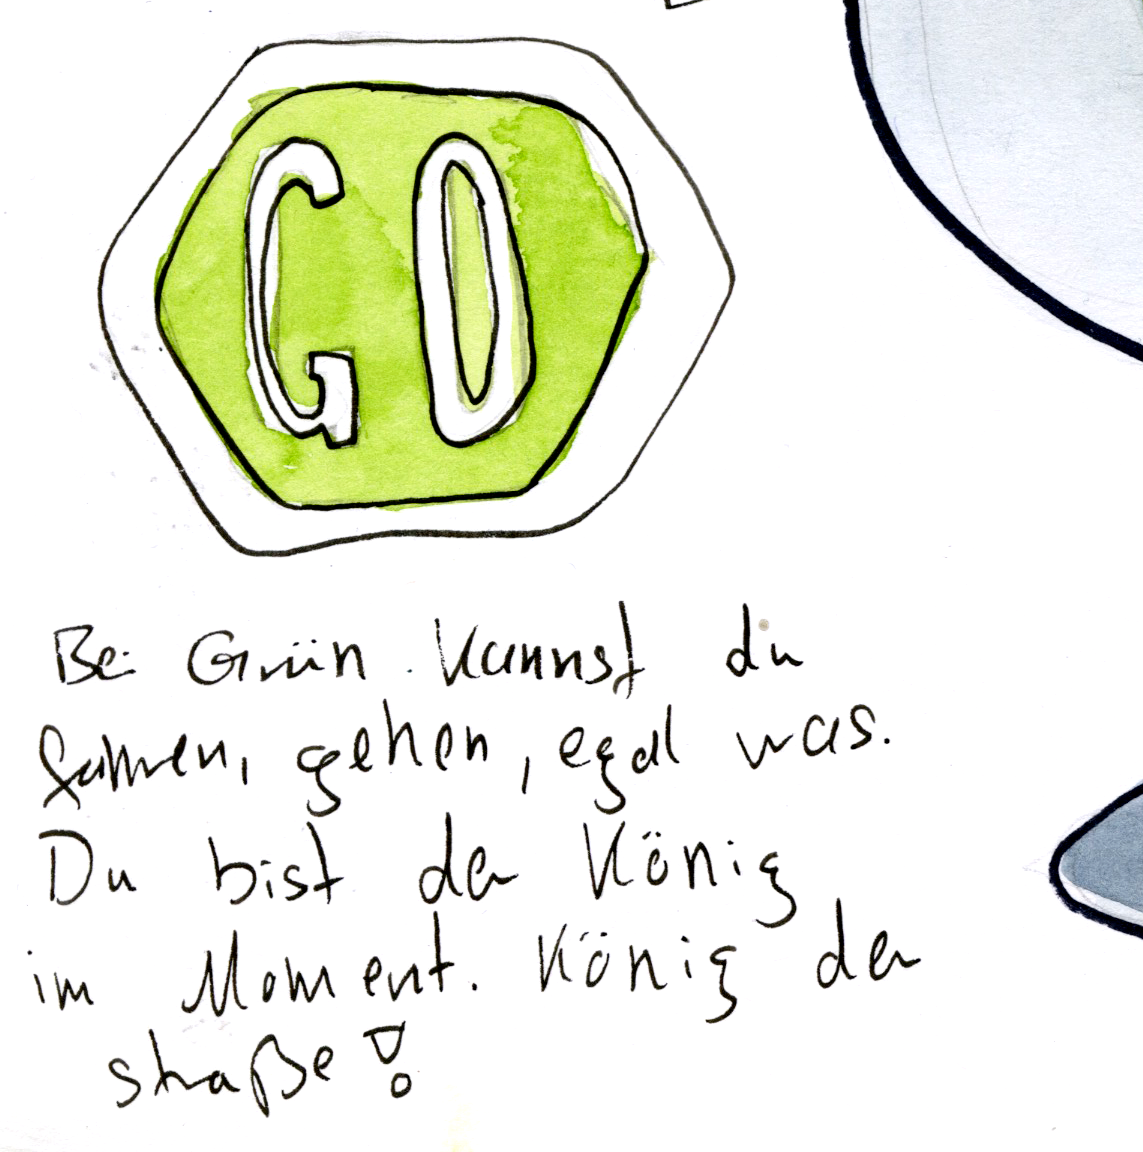 GO
Bei Grün kannst du
fahren, gehen, egal was.
Du bist der König
im Moment. König der
straße!